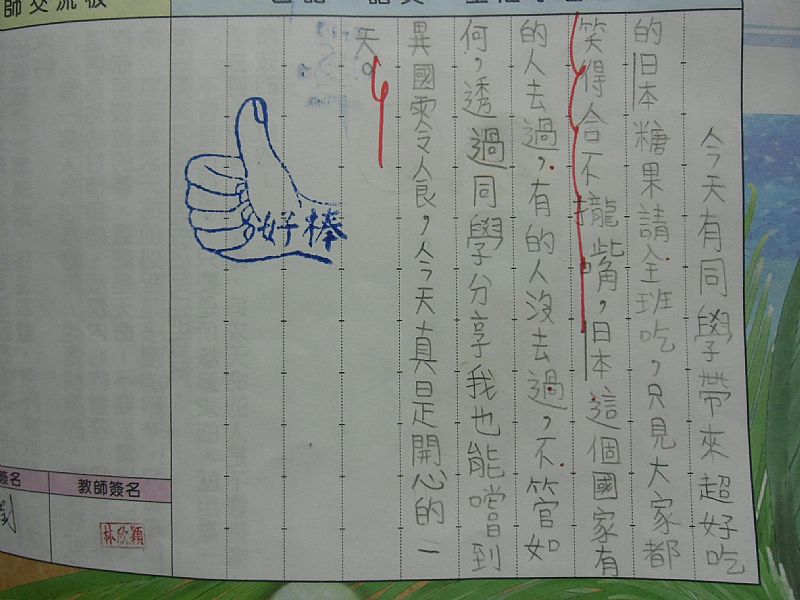 今天有同學帶來超好吃
的旧本糖果請全班吃，只見大家都
笑得合不攏嘴，日本這個國家有
的人去過，有的人沒去過，不管如
何，透過同學分享我也能嚐到
異國零食，今天真是開心的一
天。
好棒
師交流板
簽名
教師簽名
林欣穎